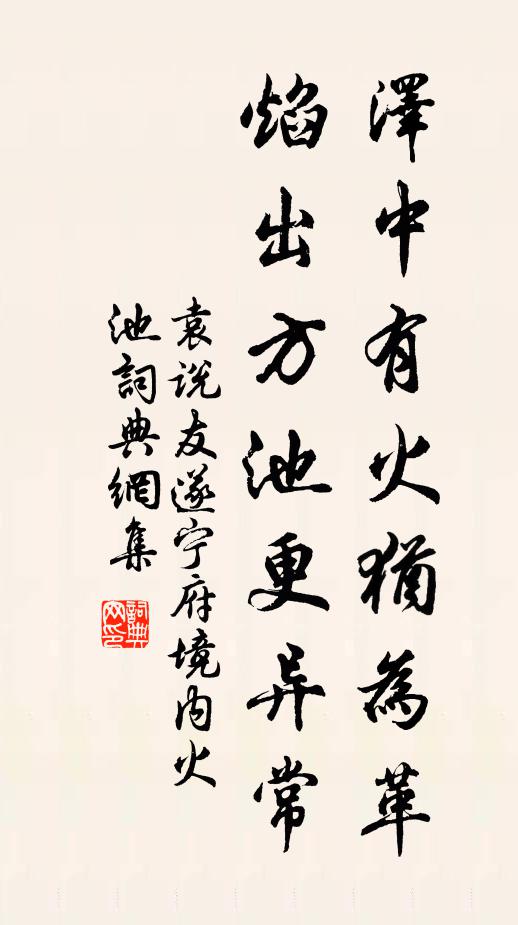 澤中有火猶為革
焰出方池更异常
袁説友遂宁府境内火
池詞典網集
詞典網印